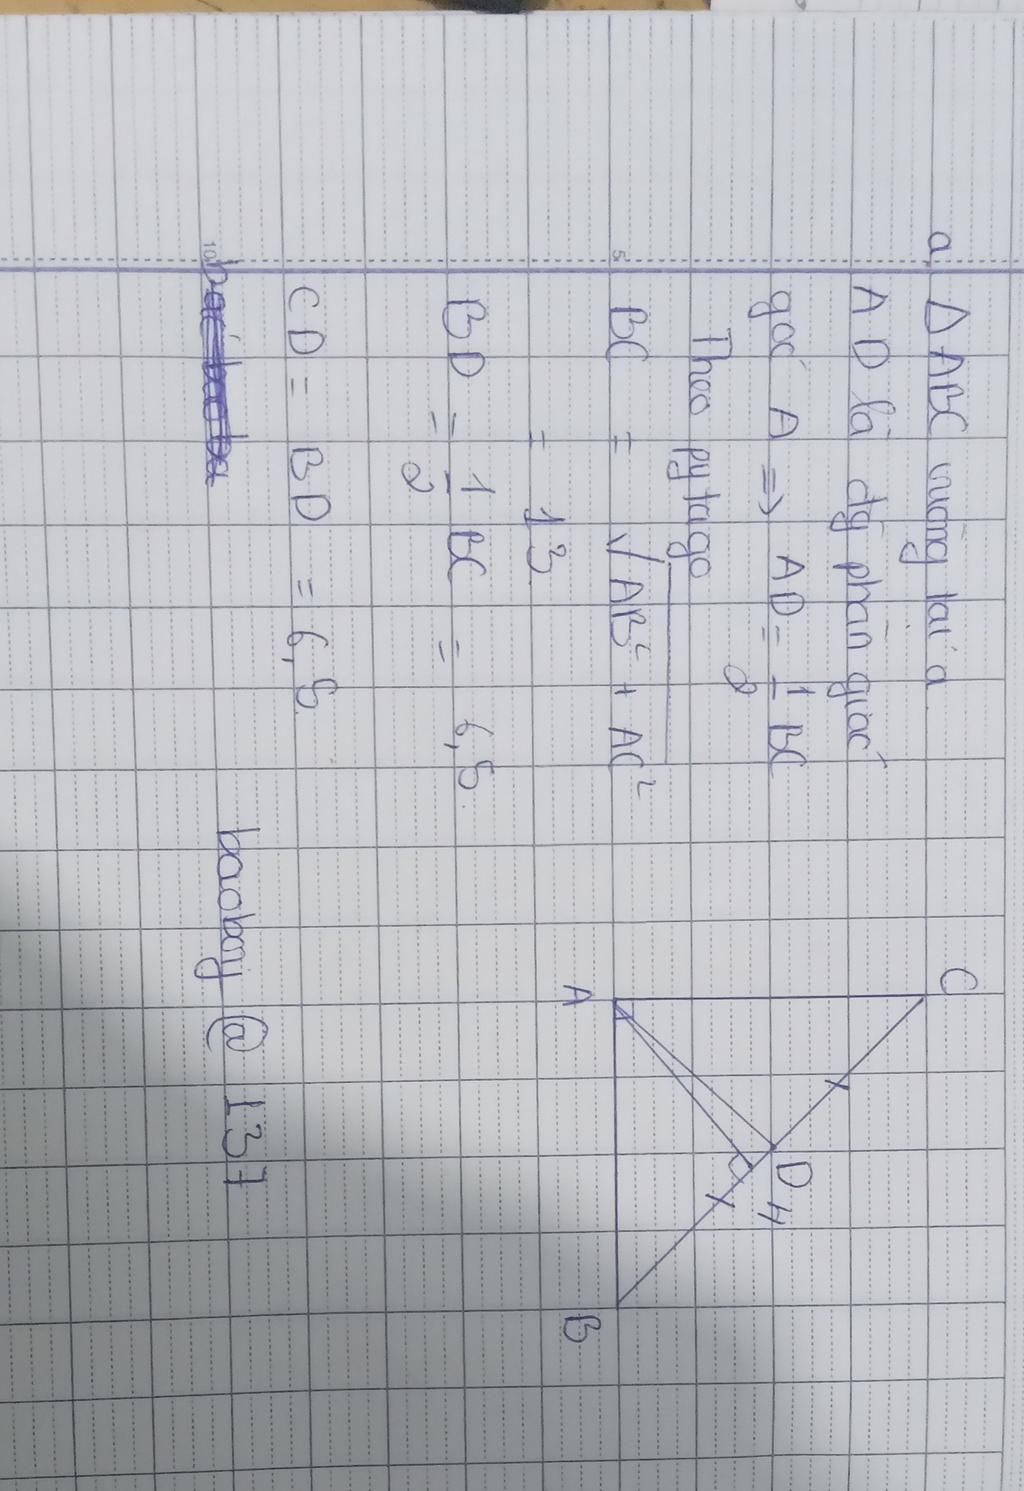 a, Δ ABC vuông tại a
AD là đg phân giác
góc A => AD = 1/2 BC
Theo pytago
BC = √AB² + AC²
= 13
BD = 1/2 BC = 6,5
=
CD = BD = 6,5
baobay @ 137
C
D
H
A
B
5
10